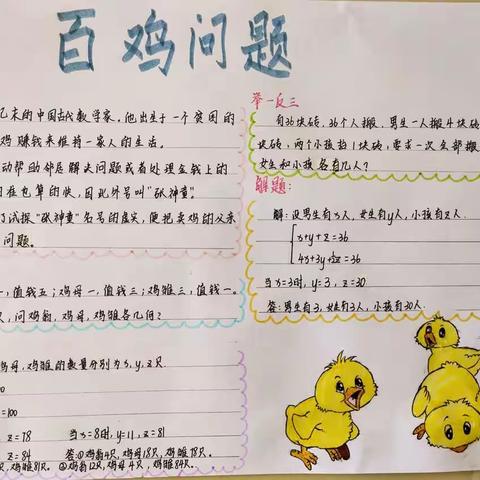 百鸡问题
末的中国古代数学家。他出生于一个贫困的
鸡赚钱来维持一家人的生活。
动帮助邻居解决问题或者处理金钱上的
也算的快，因此外号叫"张神童"。
了试探"张神童"名号的虚实，便把卖鸡的父亲
问题。
一，值钱五；鸡母一，值钱三；鸡雏三，值钱一。
，问鸡翁，鸡母，鸡雏各几何？
鸡母，鸡雏的数量分别为x，y，z只。
=100
z=78 当x=8时，y=11，z=81
z=84 答：①鸡翁4只，鸡母18只，鸡雏78只。
只，鸡雏81只。③鸡翁12只，鸡母4只，鸡雏84只。
举一反三
有36块砖，36个人搬，男生一人搬4块砖
块砖，两个小孩抬1块砖，要求一次全部搬
女生和小孩各有几人？
解题：
解：设男生有x人，女生有y人，小孩有z人.
x+y+z=36
4x+3y+½z=36
当x=3时，y=3，z=30
答：男生有3，女生有3人，小孩有30人.